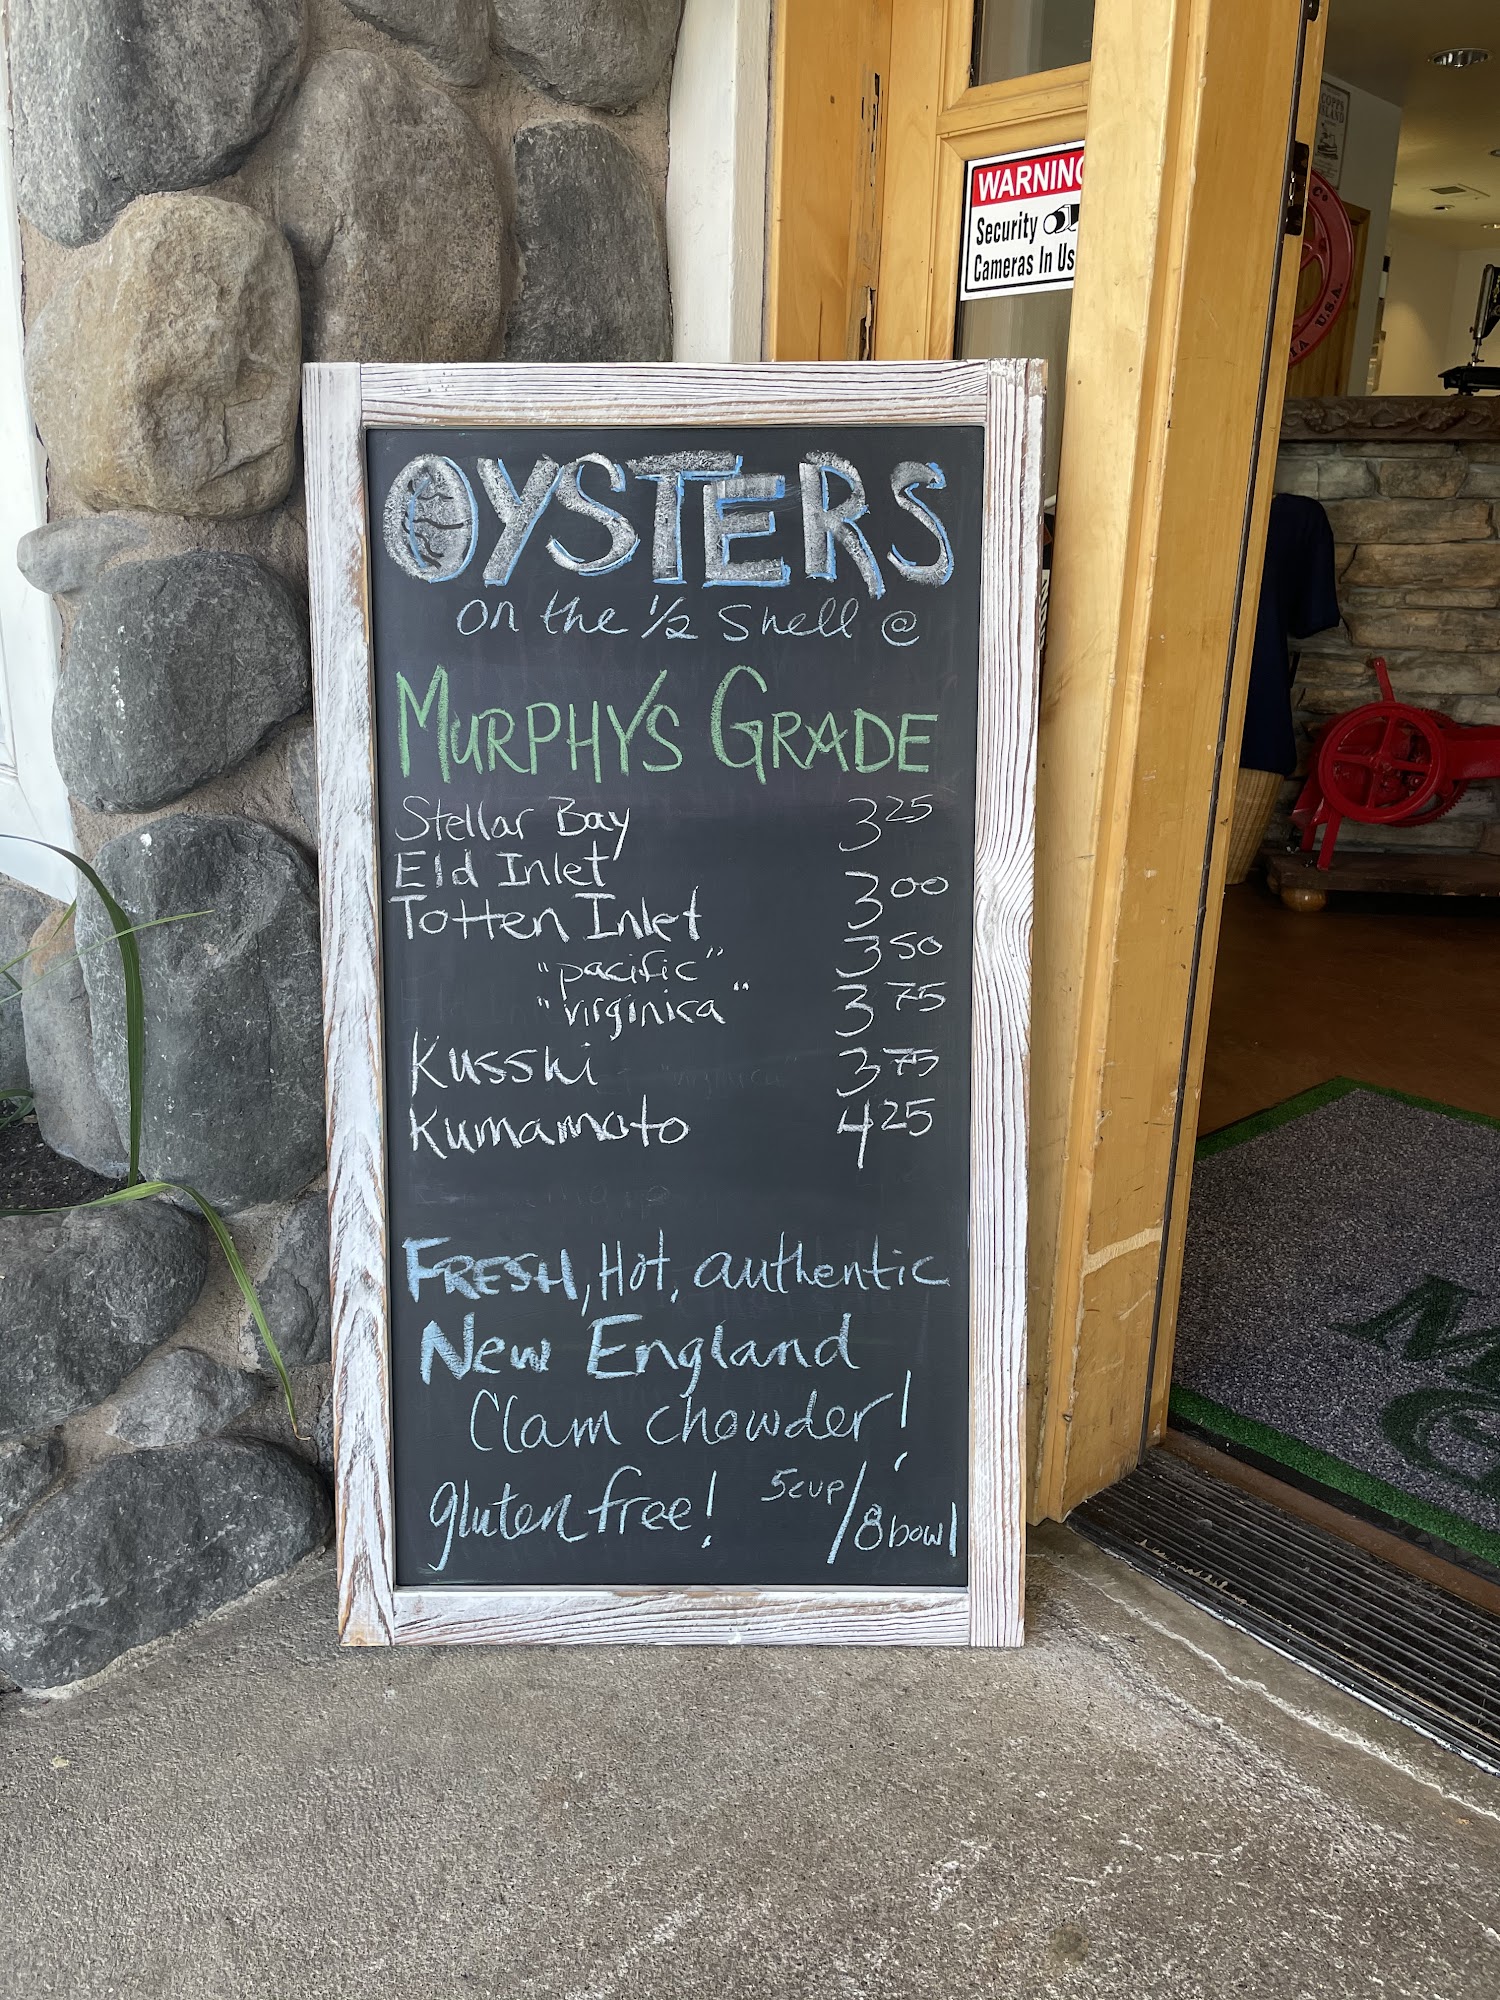 OYSTERS
on the 1/2 shell @
MURPHY'S GRADE
Stellar Bay 3 25
Eld Inlet 3 00
Totten Inlet
"pacific" 3 50
"virginica" 3 75
Kusshi 3 75
Kumamoto 4 25
FRESH, Hot, authentic
New England
Clam chowder!
gluten free! 5 cup/8 bowl
WARNING
Security
Cameras In Us
U.S.A.